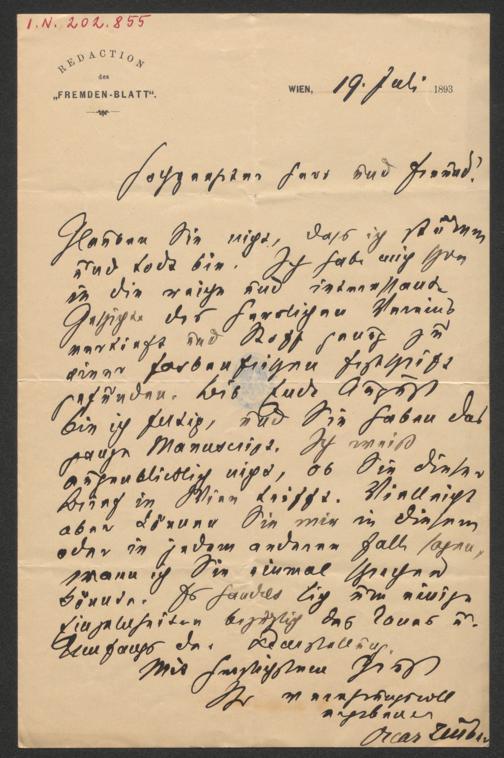 I.N. 202.855
REDACTION
des
„FREMDEN-BLATT“.
WIEN, 19. Juli 1893
Hochgeehrter Herr und Freund!
Glauben Sie nicht, daß ich stumm
und todt bin. Ich habe mich schon
in die reiche und interessante
Geschichte des herrlichen Vereins
vertieft und Stoff genug zu
einer farbenfrischen Festschrift
gefunden. Bis Ende August
bin ich fertig, und Sie haben das
ganze Manuscript. Ich weiß
augenblicklich nicht, ob Sie dieser
Brief in Wien trifft. Vielleicht
aber können Sie mir in diesem
oder in jedem anderen Fall sagen,
wann ich Sie einmal sprechen
könnte. Es handelt sich um einige
Einzelheiten bezüglich des Tones u.
Umfangs der Darstellung.
Mit herzlichstem Gruß
Ihr verehrungsvoll
ergebener
Oscar Teuber